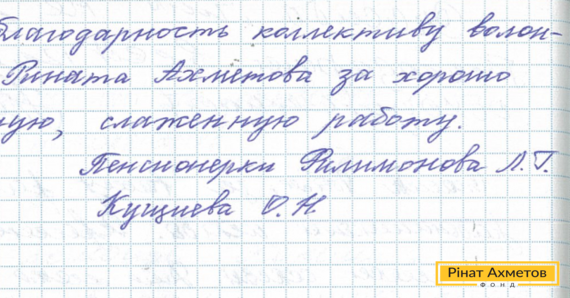 благодарность коллективу волон-
Рината Ахметова за хорошо
ную, слаженную работу.
Пенсионерки Филимонова Л.Г.
Кущиева О.Н.
Рінат Ахметов
ФОНД